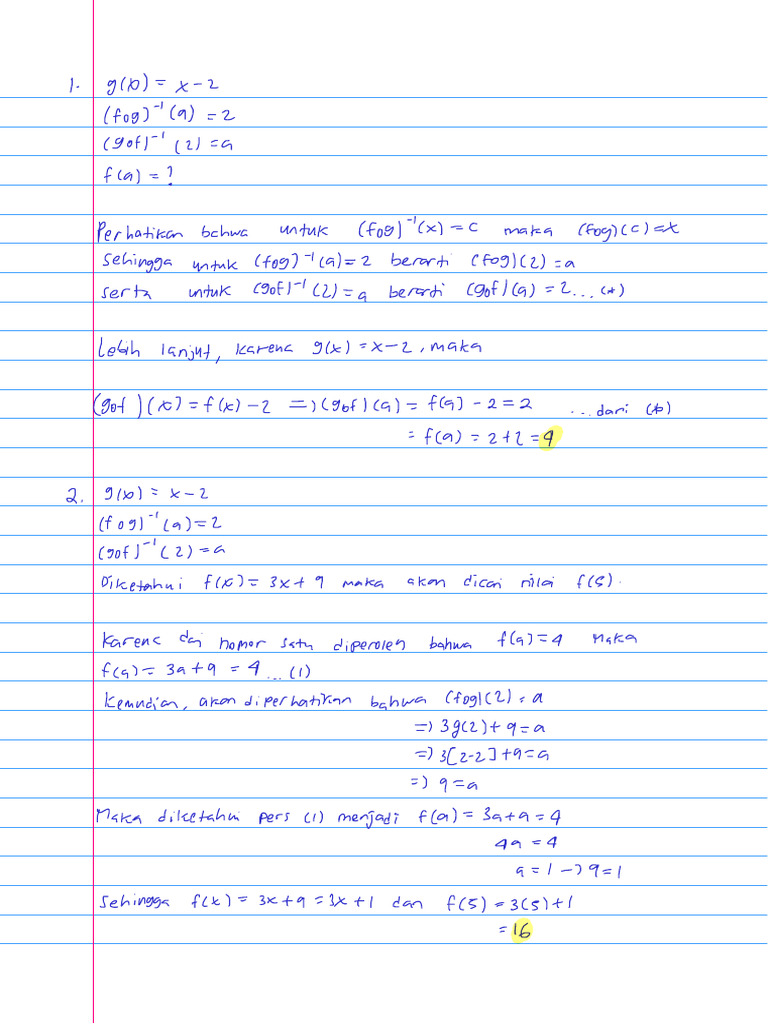 1. g(x) = x - 2
(fog)⁻¹(a) = 2
(gof)⁻¹(2) = a
f(a) = ?
Perhatikan bahwa untuk (fog)⁻¹(x) = c maka (fog)(c) = x
Sehingga untuk (fog)⁻¹(a) = 2 berarti (fog)(2) = a
serta untuk (gof)⁻¹(2) = a berarti (gof)(a) = 2 ... (*)
Lebih lanjut, karena g(x) = x - 2, maka
(gof)(x) = f(x) - 2 => (gof)(a) = f(a) - 2 = 2 ... dari (*)
= f(a) = 2 + 2 = 4
2. g(x) = x - 2
(fog)⁻¹(a) = 2
(gof)⁻¹(2) = a
Diketahui f(x) = 3x + q maka akan dicari nilai f(5).
Karena dari nomor satu diperoleh bahwa f(a) = 4 Maka
f(a) = 3a + q = 4 ... (1)
Kemudian, akan diperhatikan bahwa (fog)(2) = a
=> 3g(2) + q = a
=> 3[2-2] + q = a
=> q = a
Maka diketahui pers (1) menjadi f(a) = 3a + a = 4
4a = 4
a = 1 -> q = 1
Sehingga f(x) = 3x + q = 3x + 1 dan f(5) = 3(5) + 1
= 16